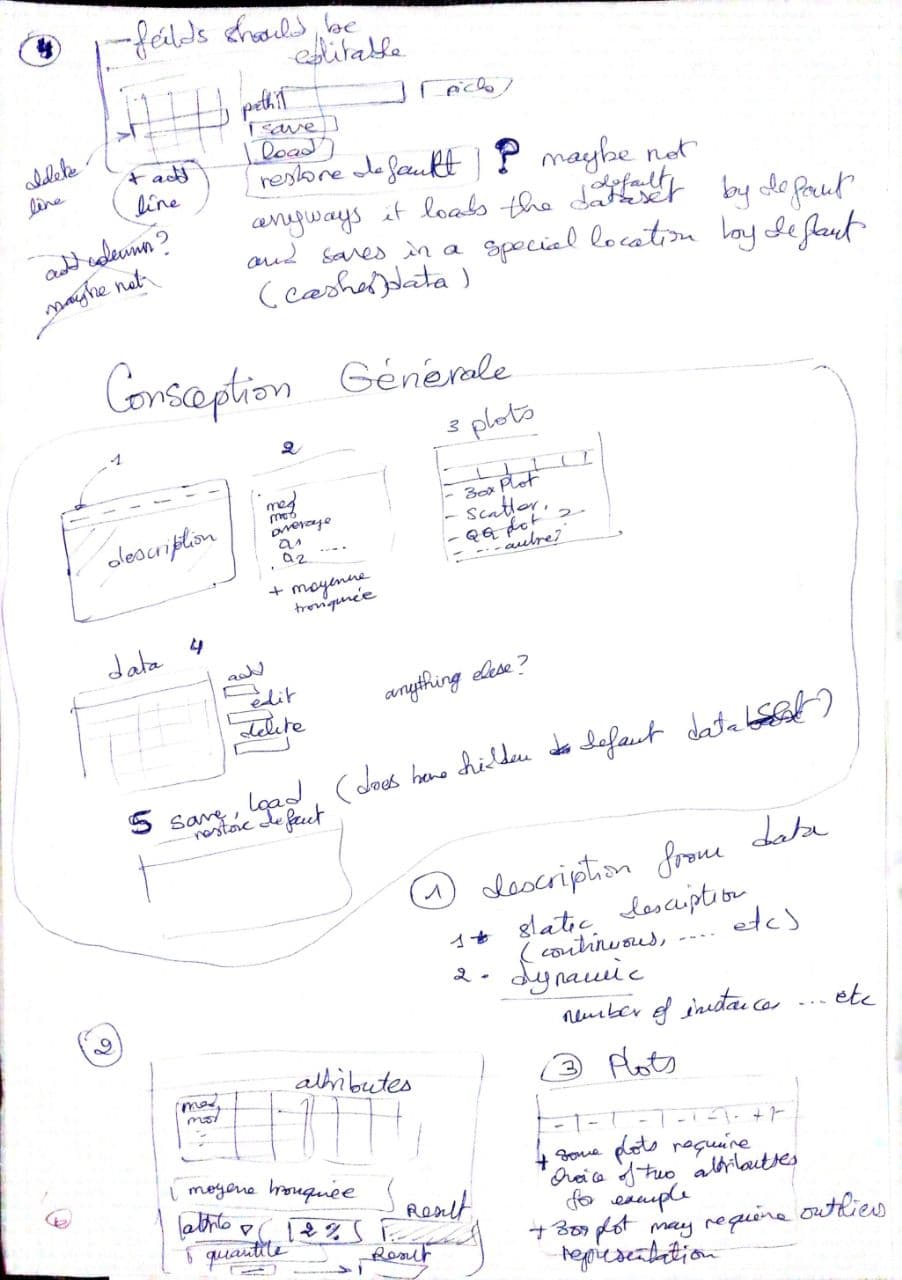 4
- feilds should be
editable
path
pick
save
load
restore default ? maybe not
delete
line
+ add
line
add column?
maybe not
default
anyways it loads the dataset by defaut
and saves in a special location by defaut
(cashes)data)
Consception Générale
1
description
2
med
mod
average
Q1
Q2 ....
+ moyenne
tronquée
3 plots
- Box Plot
- Scatter,
- QQ plot
- ... autre?
data 4
add
edit
delete
anything else?
5 save, load (does have hidden defaut dataset)
restore defaut
1 description from data
1 static desciption
(continuous, .... etc)
2 - dynamic
number of instances ... etc
2
attributes
med,
mod
moyene tronquée
attrib 2% Result
quantile Result
3 Plots
+ some plots require
choice of two attributses
for example
+ Box plot may require outliers
representation